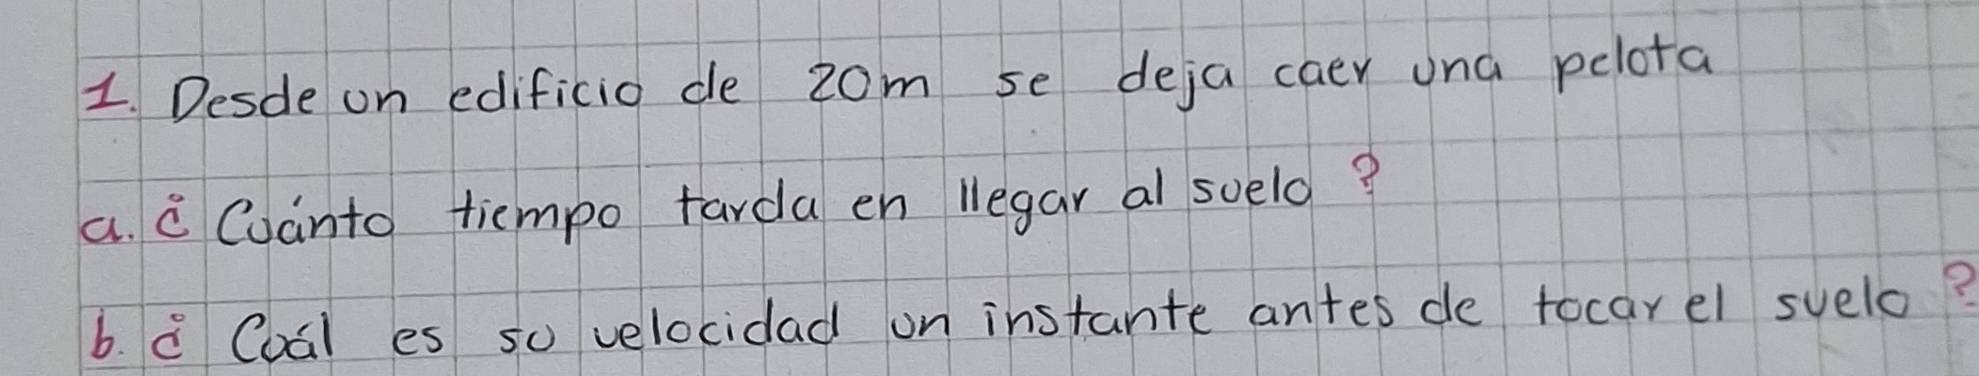 1. Desde un edificio de 20m se deja caer una pelota
a. ¿ Cuánto tiempo tarda en llegar al suelo ?
b. ¿ Cuál es su velocidad un instante antes de tocar el suelo ?